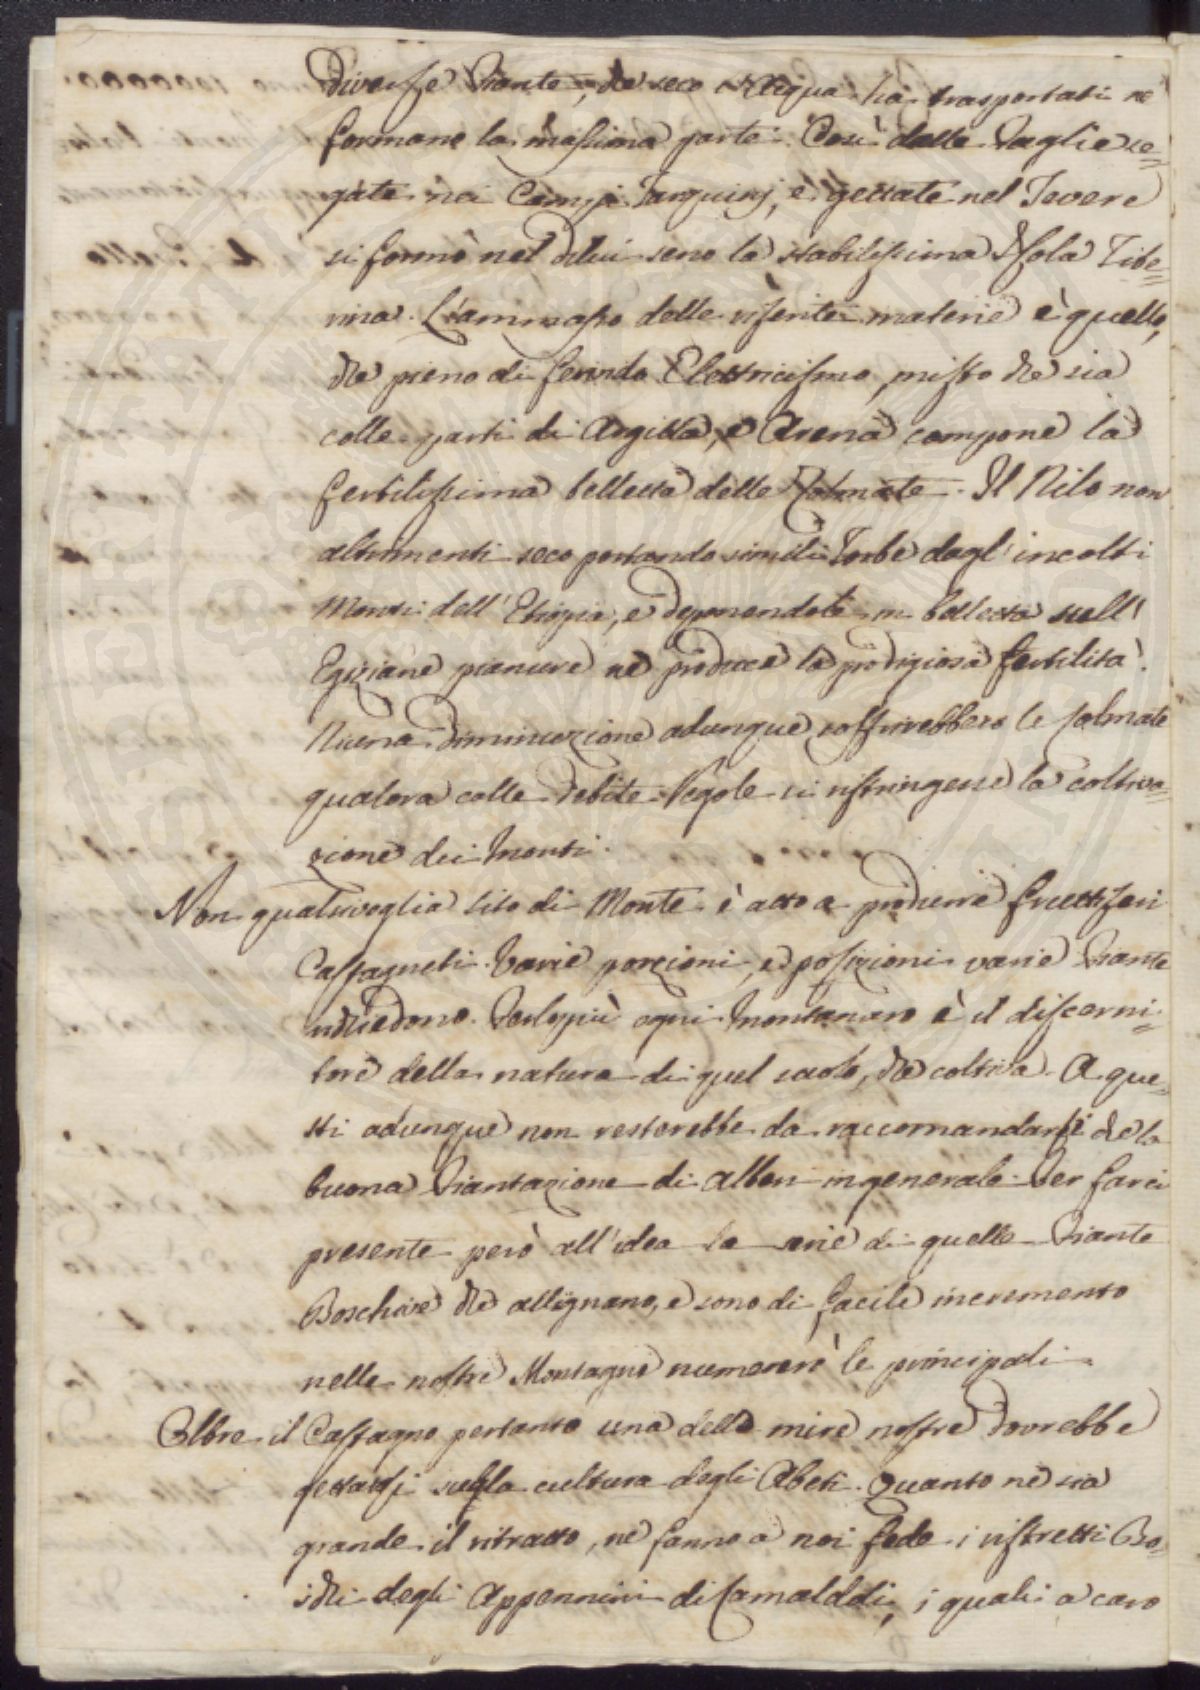 diverse Piante, che seco l'Acqua hà trasportati ne
formano la massima parte. Così dalle Paglie se=
gate nei Campi Tarquinj, e gettate nel Tevere
si formò nel di lui seno la stabilissima Isola Tibe=
rina. L'ammasso delle riferite materie è quello,
che pieno di fecondo Elettricismo, misto che sia
colle parti di Argilla, e Arena compone la
fertilissima belletta delle Colmate. Il Nilo non
altrimenti seco portando simili Torbe dagl'incolti
Monti dell'Etiopia, e deponendole in belletta sull'
Egiziane pianure ne produce la prodigiosa fertilità.
Niuna diminuzione adunque soffrirebbero le Colmate
qualora colle debite Regole si ristringesse la coltiva=
zione dei Monti.
Non qualsivoglia sito di Monte è atto a produrre fruttiferi
Castagneti. Varie porzioni, e posizioni varie Piante
richiedono. Perlopiù ogni Montanaro è il discerni=
tore della natura di quel suolo, che coltiva. A que=
sti adunque non resterebbe da raccomandarsi che la
buona Piantazione di alberi in generale. Per farci
presente però all'idea la serie di quelle Piante
Boschive che allignano, e sono di facile incremento
nelle nostre Montagne numererò le principali.
Oltre il Castagno pertanto una delle mire nostre dovrebbe
gettarsi sulla cultura degli Abeti. Quanto ne sia
grande il ritratto, ne fanno a noi fede i ristretti Bo=
schi degli Appennini di Camaldoli, i quali a caro